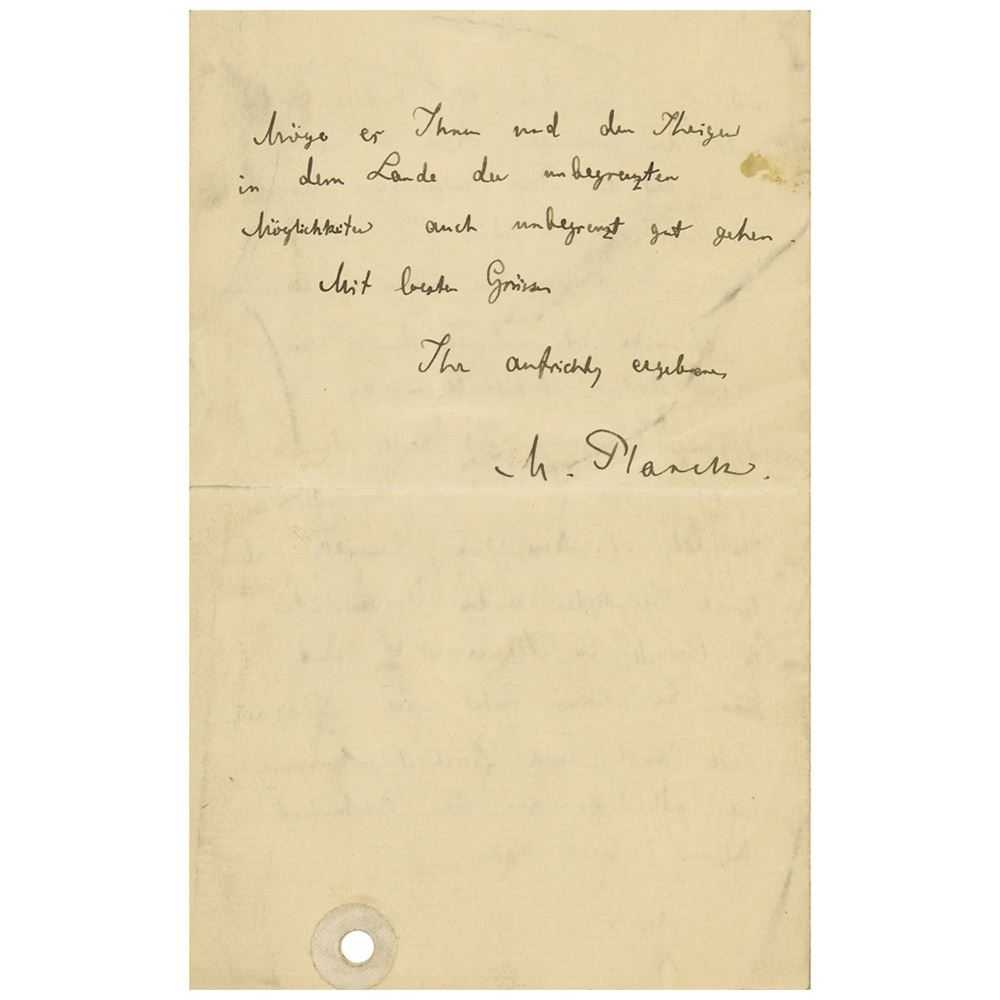 Möge es Ihnen und den Ihrigen
in dem Lande der unbegrenzten
Möglichkeiten auch unbegrenzt gut gehen.
Mit besten Grüssen
Ihr aufrichtig ergebener
M. Planck.